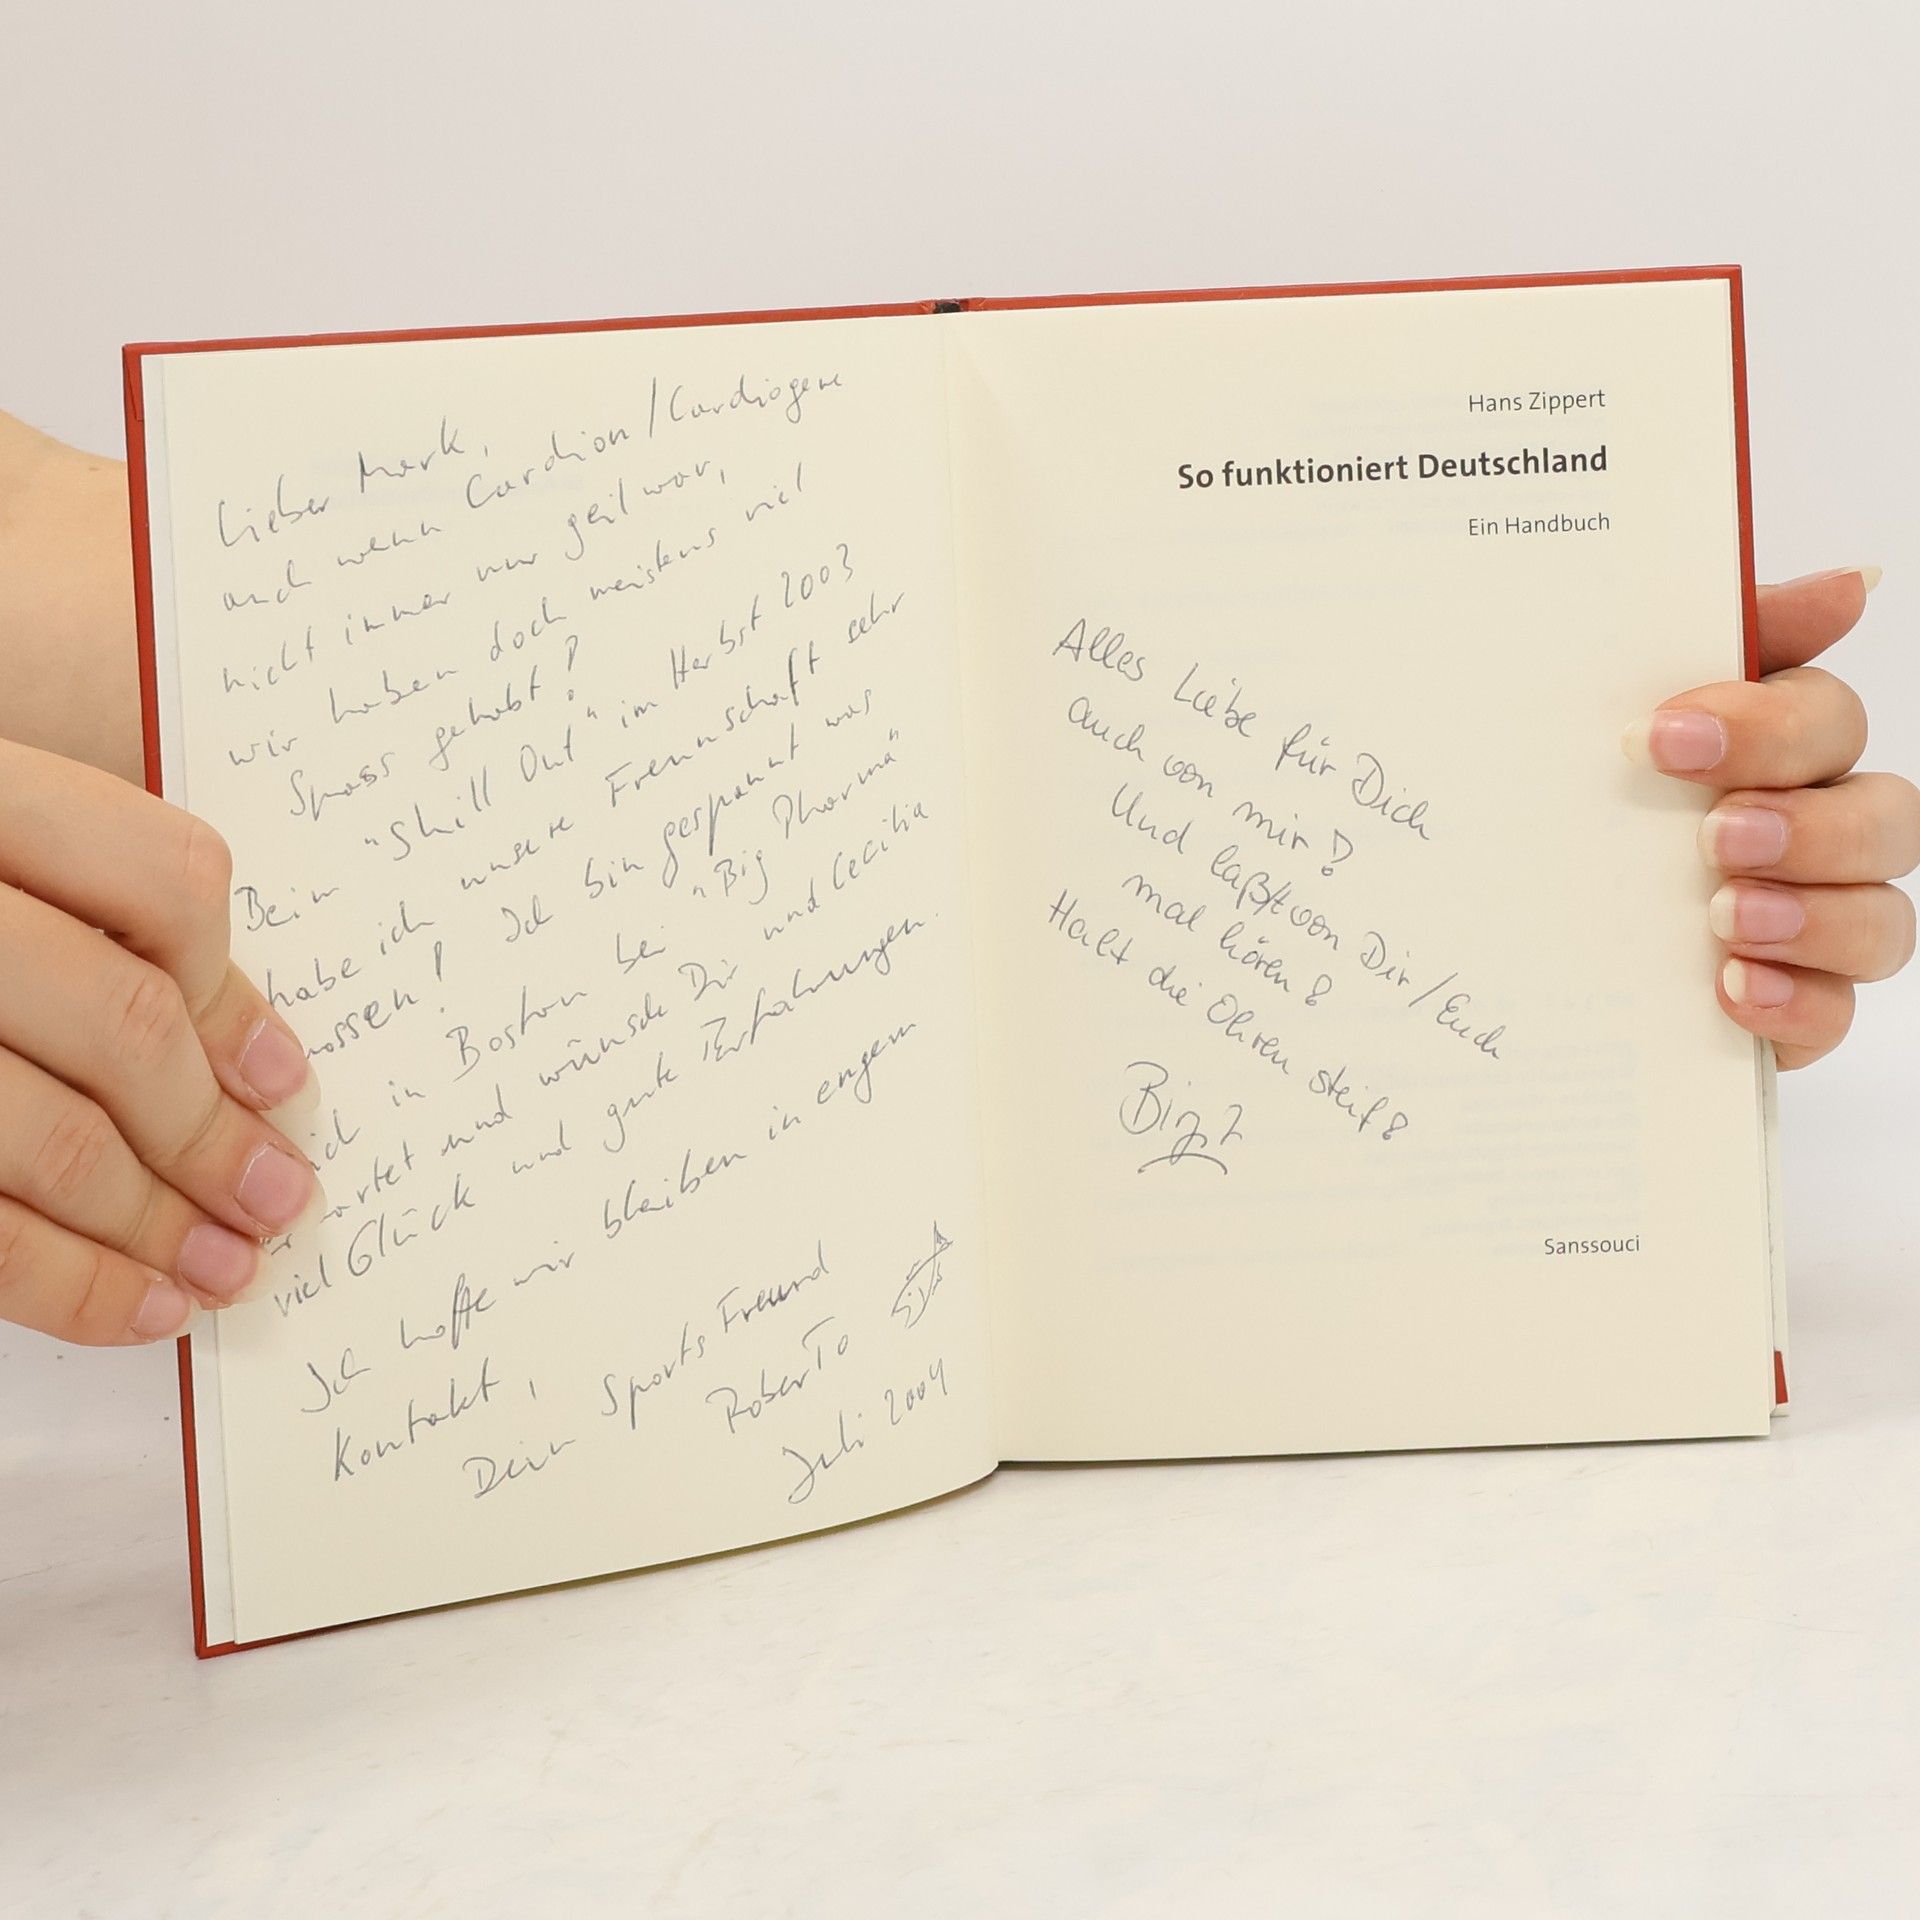 Lieber Mark,
auch wenn Cardion/Cardiogene
nicht immer nur geil war,
wir haben doch meistens viel
Spass gehabt!
Beim "Shill Out" im Herbst 2003
habe ich unsere Freunschaft sehr
nossen! Ich bin gespannt was
ich in Boston bei "Big Pharma"
artet und wünsche Dir und Cecilia
viel Glück und gute Erfahrungen.
Ich hoffe wir bleiben in engem
Kontakt,
Dein Sports Freund
RoberTo
Juli 2004
Hans Zippert
So funktioniert Deutschland
Ein Handbuch
Alles Liebe für Dich
auch von mir!
Und laßt von Dir/Euch
mal hören!
Halt die Ohren steif!
Sanssouci